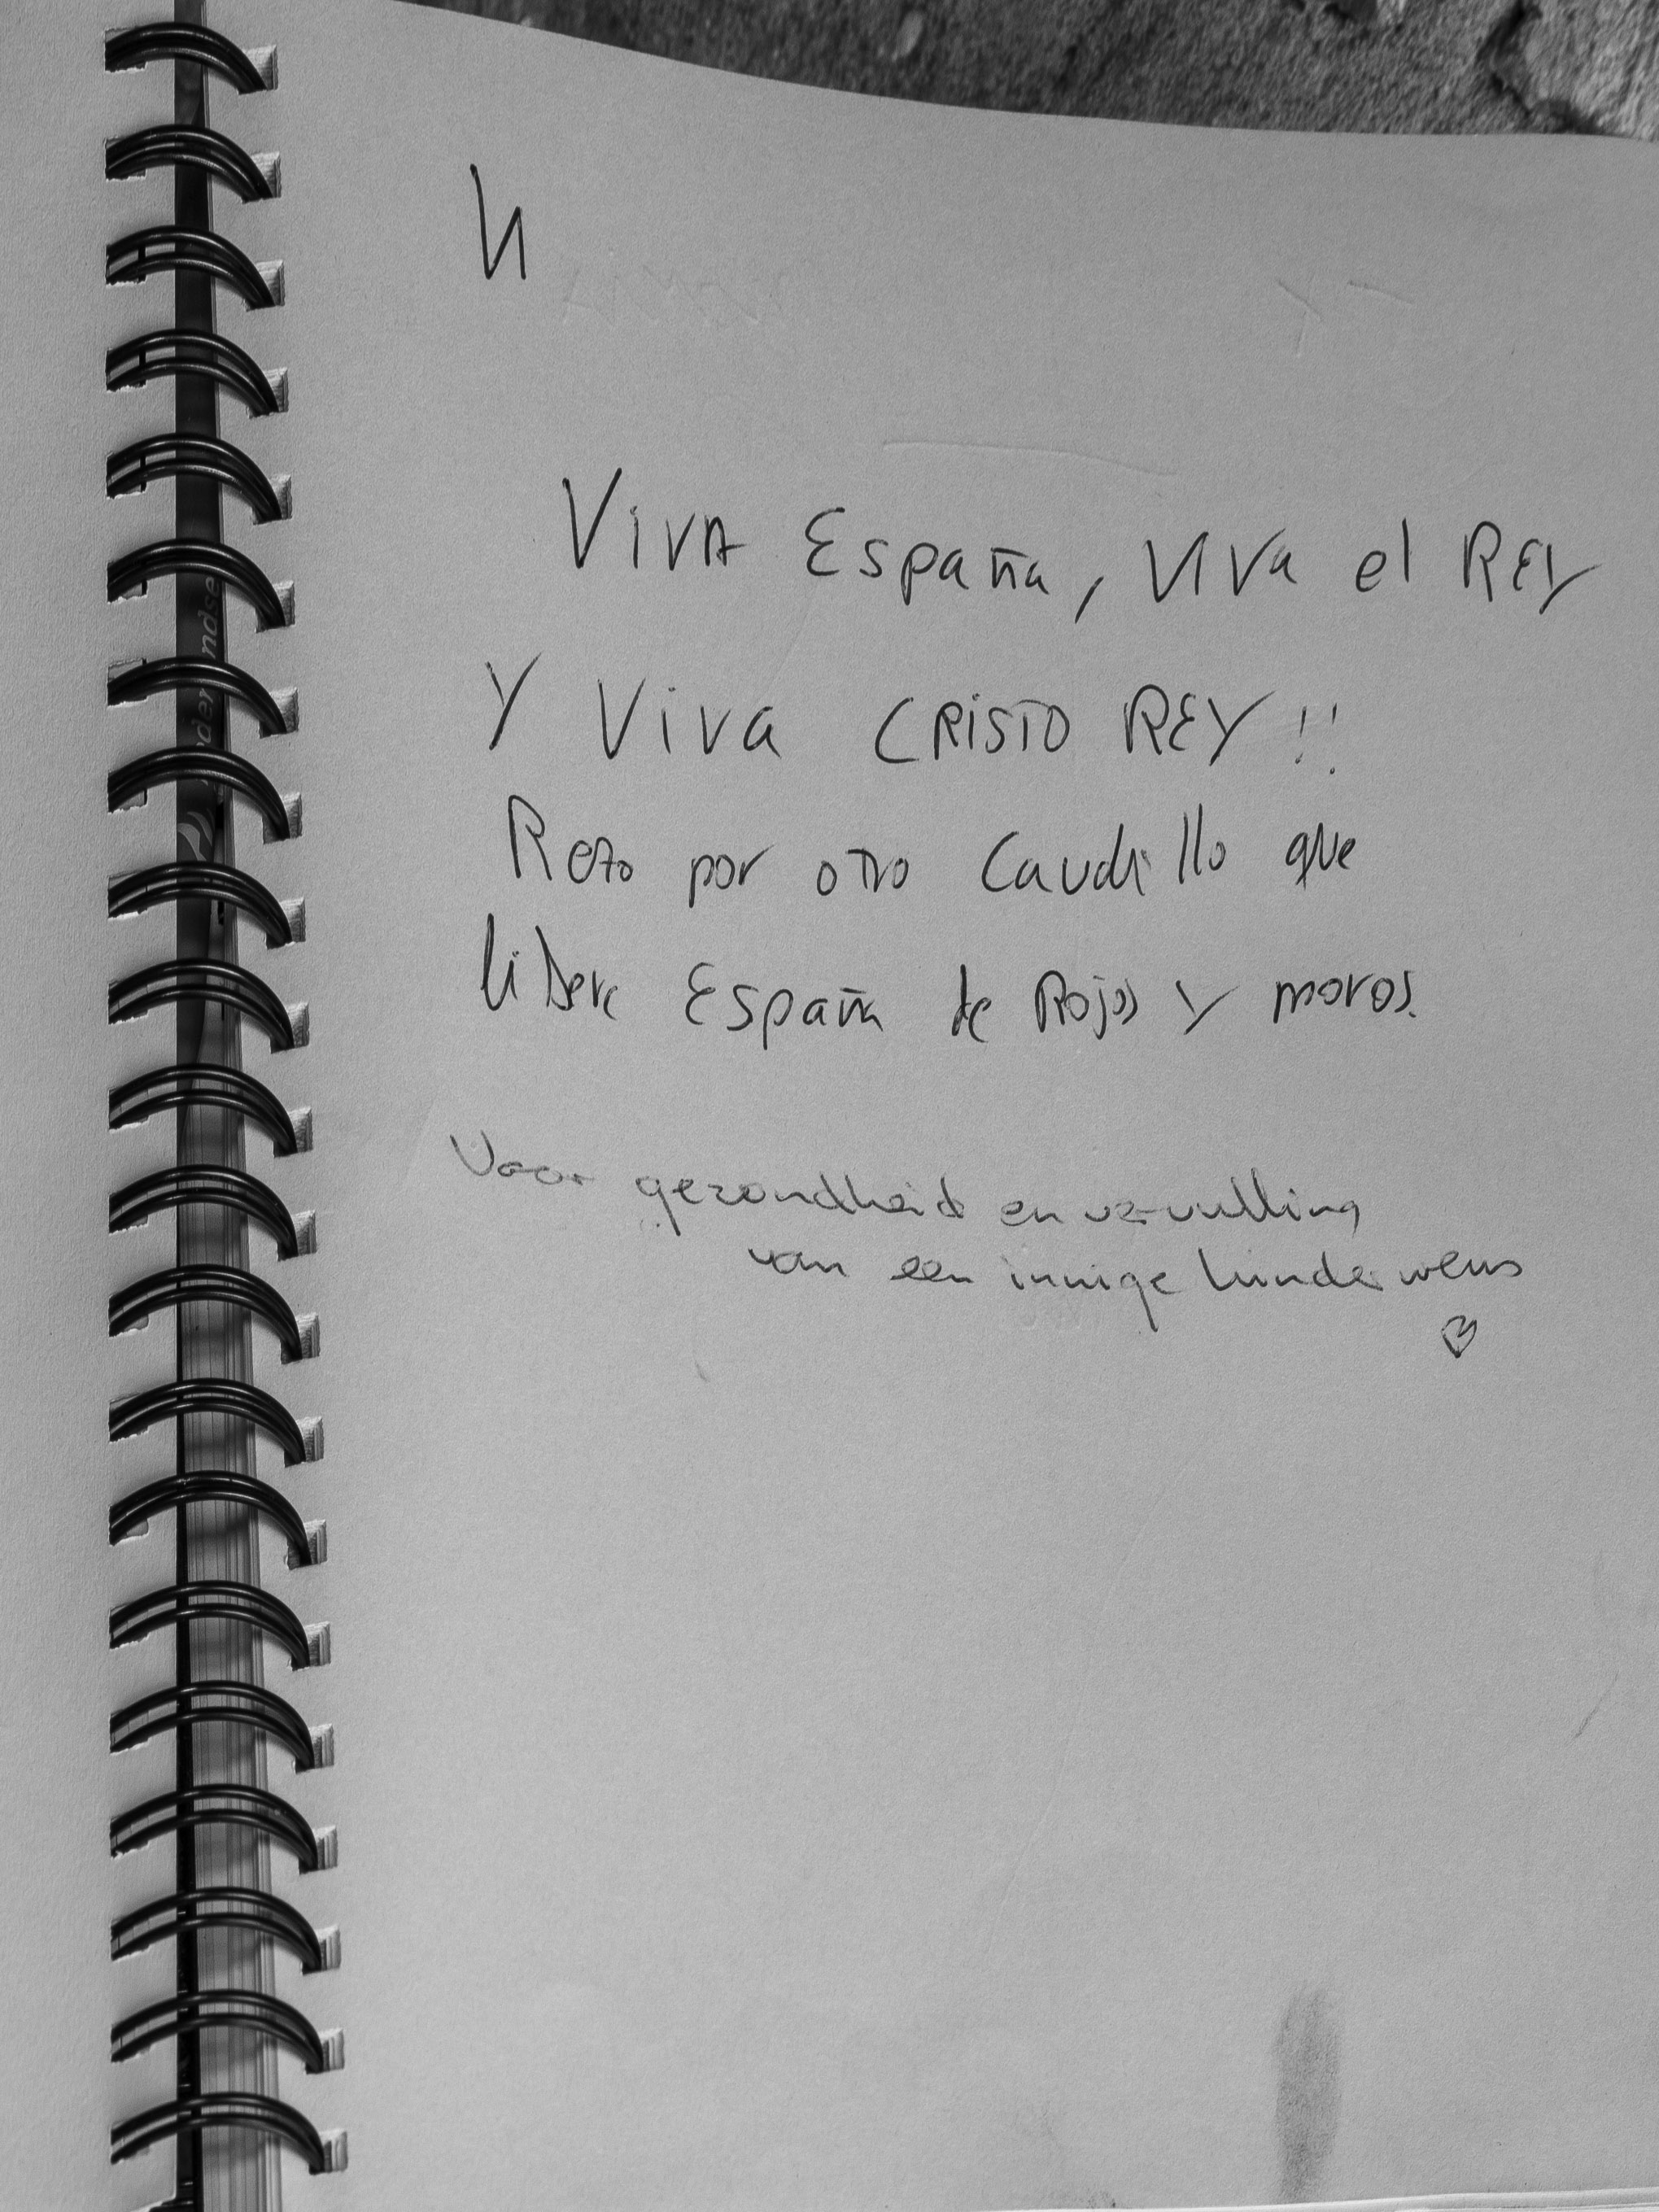 VIVA España, VIVa el REY
Y Viva CRISTO REY!!
Rezo por otro Caudillo que
libere España de Rojos Y moros.
Voor gezondheid en vervulling
van een innige kinderwens